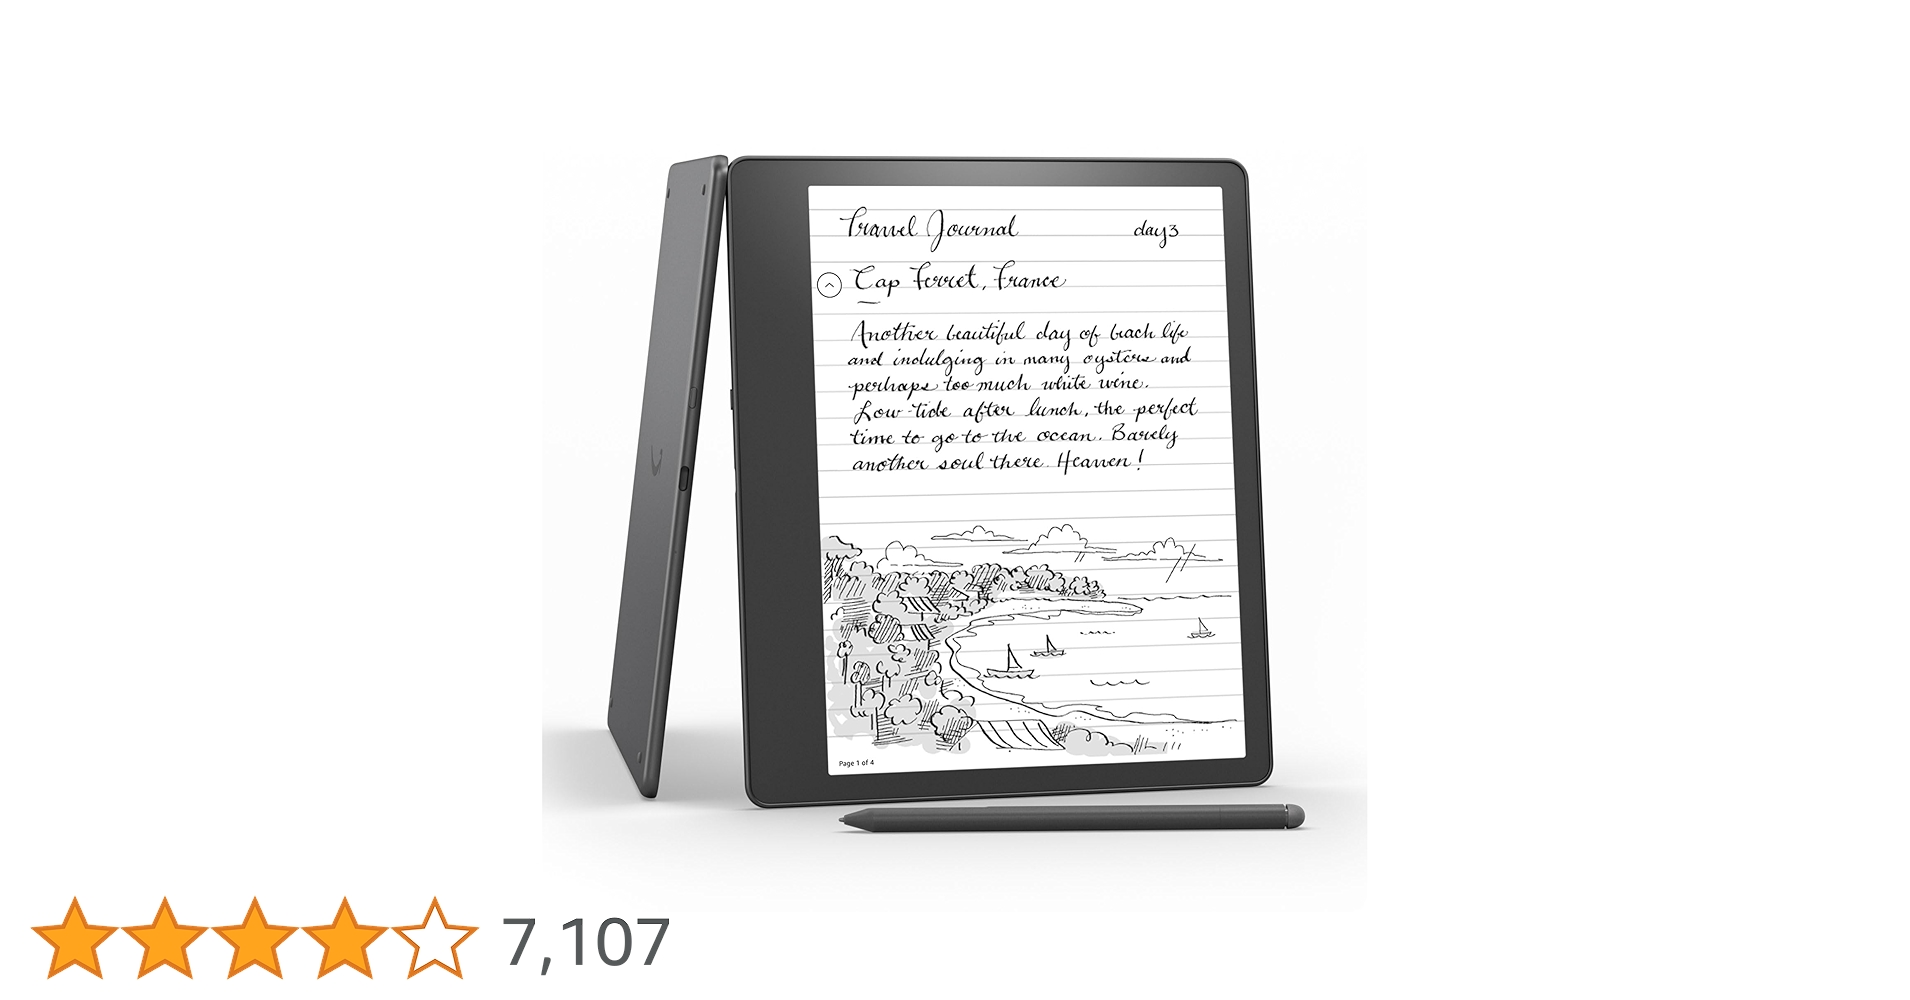 Travel Journal day 3
Cap Ferret, France
Another beautiful day of beach life
and indulging in many oysters and
perhaps too much white wine.
Low tide after lunch, the perfect
time to go to the ocean. Barely
another soul there. Heaven!
Page 1 of 4
7,107